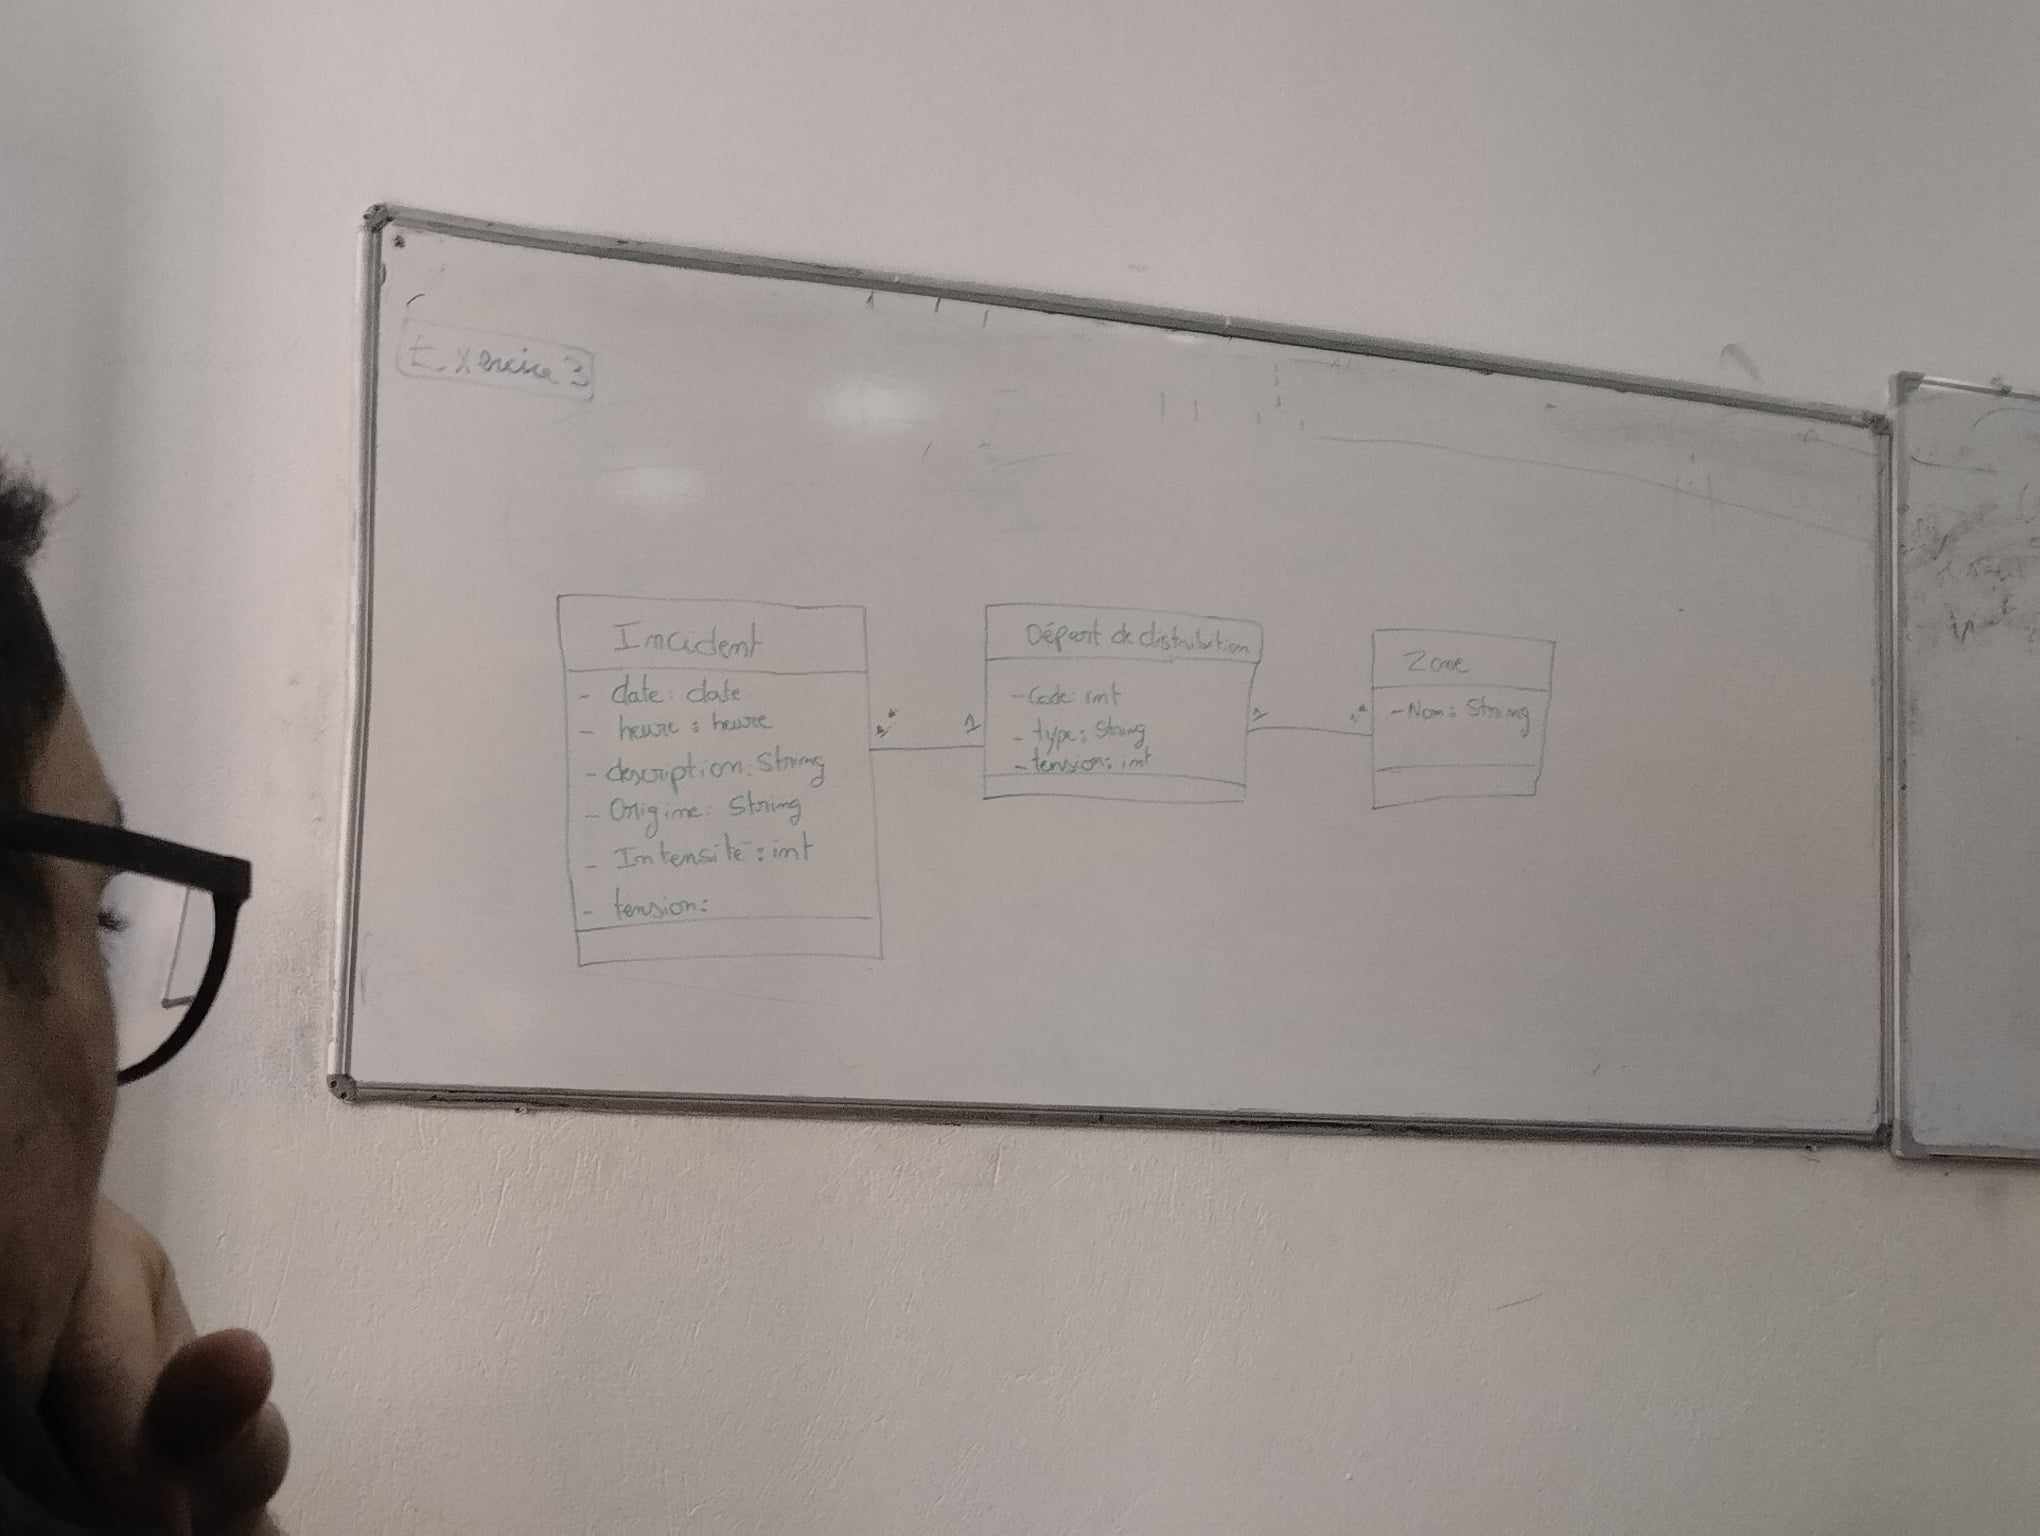 Exercice 3
Incident
- date: date
- heure: heure
- description: String
- Origine: String
- Intensité: int
- tension:
1
Départ de distribution
- Code: int
- type: String
- tension: int
1
Zone
- Nom: String